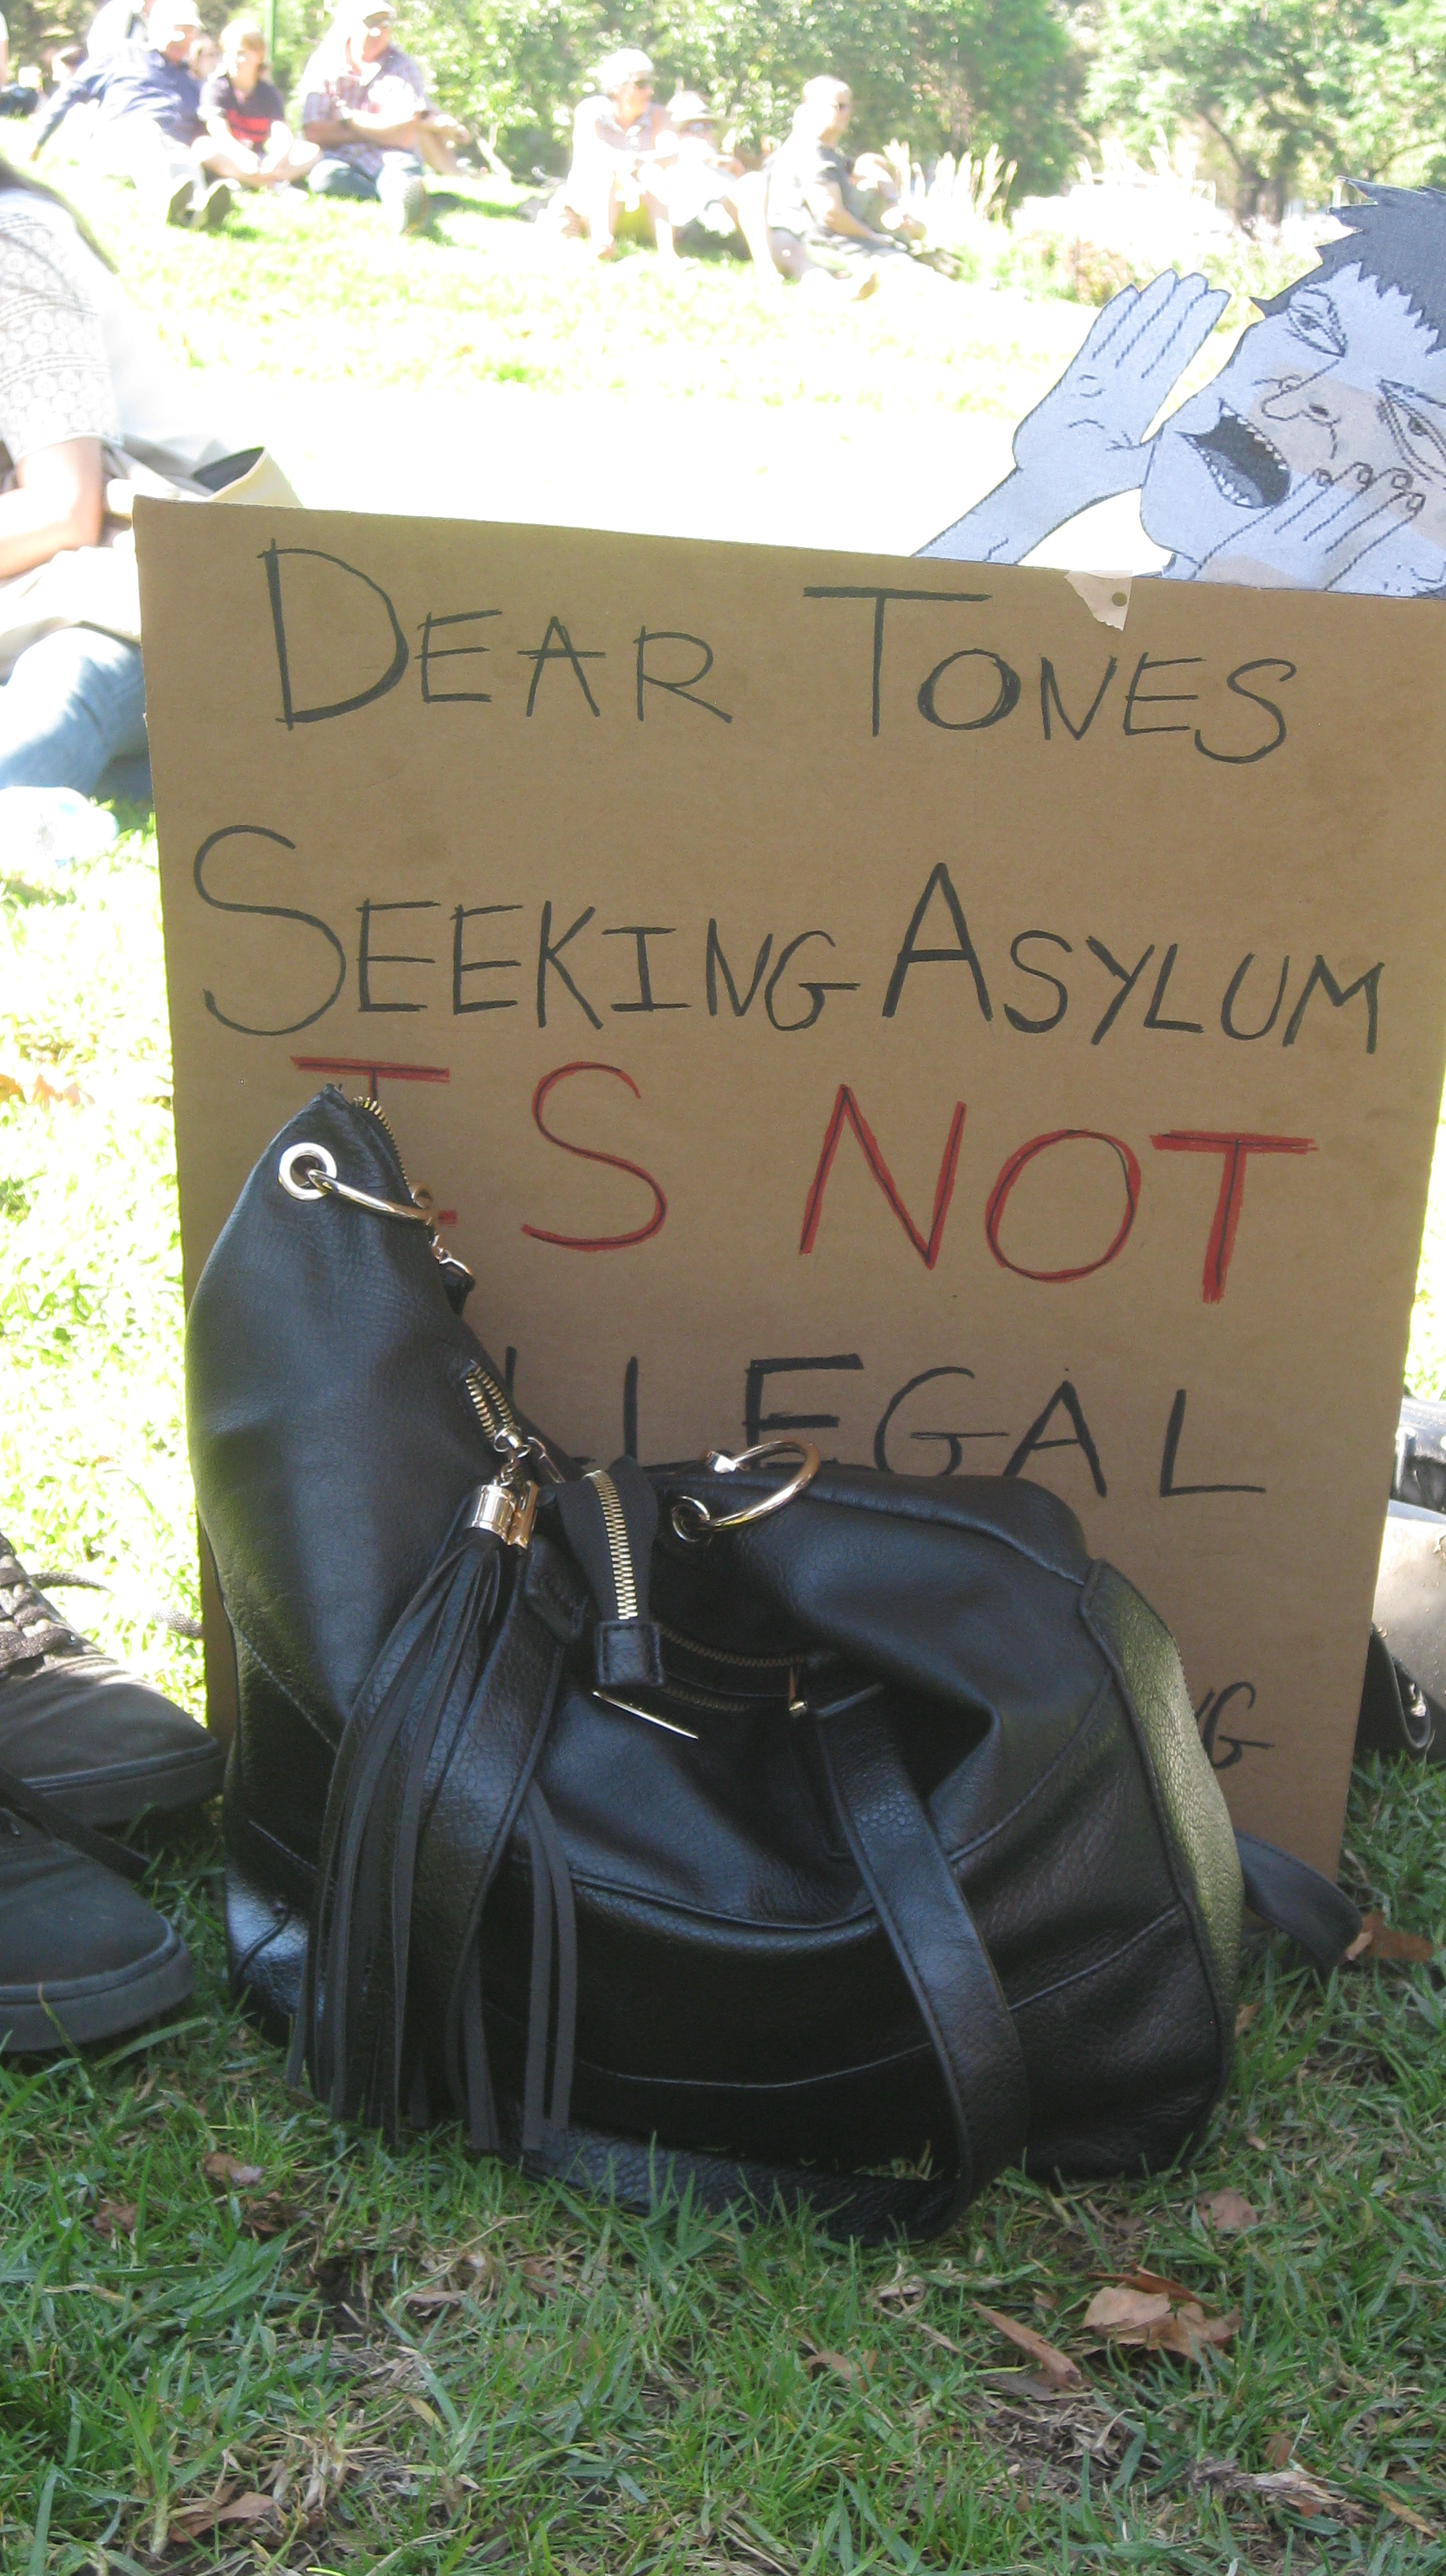 DEAR TONES
SEEKING ASYLUM
IS NOT
ILLEGAL